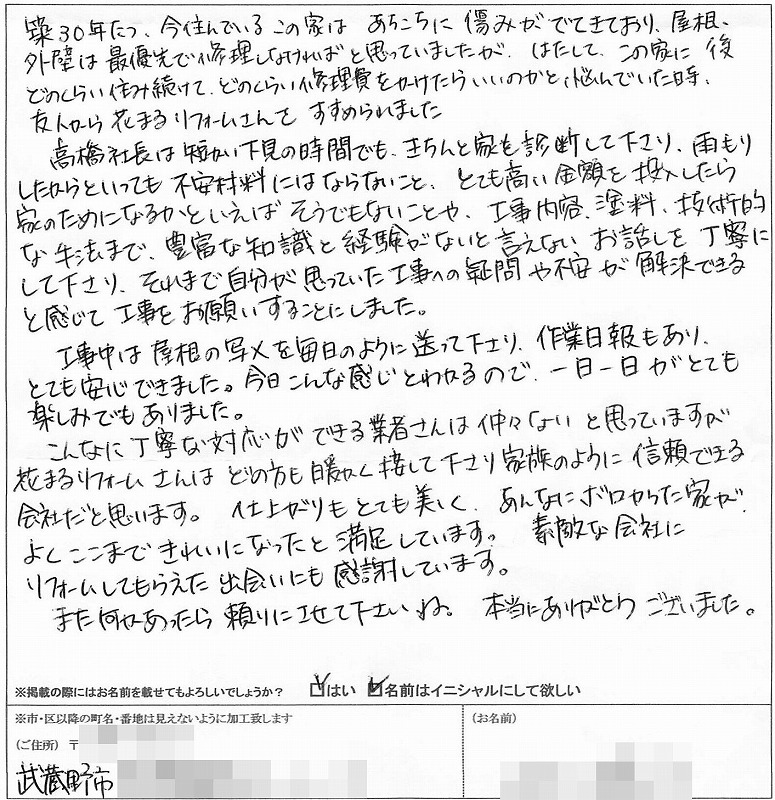 築30年たつ、今住んでいるこの家は あちこちに 傷みがでてきており、屋根、
外壁は最優先で修理しなければと思っていましたが、はたして、この家に 後
どのくらい住み続けて、どのくらい修理費をかけたらいいのかと、悩んでいた時、
友人から 花まるリフォームさんを すすめられました
高橋社長は 短かい下見の時間でも、きちんと家を診断して下さり、雨もり
したからといっても 不安材料にはならないこと、とても高い金額を投入したら
家のためになるかといえば そうでもないことや、工事内容、塗料、技術的
な手法まで、豊富な知識と経験がないと言えない お話しを 丁寧に
して下さり、それまで自分が思っていた工事への疑問や不安が 解決できる
と感じて 工事をお願いすることにしました。
工事中は 屋根の写メを毎日のように送って下さり、作業日報もあり、
とても安心できました。今日こんな感じとわかるので、一日一日がとても
楽しみでもありました。
こんなに丁寧な対応ができる業者さんは仲々ないと思っていますが
花まるリフォームさんは どの方も暖かく接して下さり家族のように信頼できる
会社だと思います。 仕上がりもとても美しく、あんなにボロかった家が、
よくここまできれいになったと満足しています。 素敵な会社に
リフォームしてもらえた出会いにも感謝しています。
また何かあったら頼りにさせて下さいね。 本当にありがとうございました。
※掲載の際にはお名前を載せてもよろしいでしょうか? はい 名前はイニシャルにして欲しい
※市・区以降の町名・番地は見えないように加工致します
(お名前)
(ご住所) 〒
武蔵野市